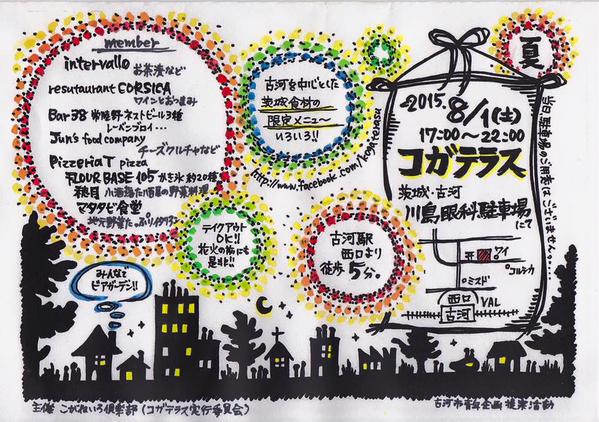 member
intervallo お茶漬など
restaurant CORSICA
ワインとおつまみ
Bar38 常陸野ネストビール3種
レーベンブロイ・・・
Jun's food company
チーズクルチャなど
PizzeriaT pizza
FLOUR BASE 105 かき氷 約20種
マタタビ食堂
地元野菜たっぷりイタリアン
古河を中心とした
茨城食材の
限定メニュー
いろいろ!!
http://www.facebook.com/kogaterasu
夏
2015. 8/1(土)
17:00〜22:00
コガテラス
茨城・古河
川島眼科駐車場
にて
ワイ
コルシカ
ミスド
西口
VAL
古河
当日駐車場のご用意はございません・・・
テイクアウト
OK!!
花火の際にも
是非!!
古河駅
西口より
徒歩5分。
みんなで
ビアガーデン!!
主催 こがねいろ倶楽部(コガテラス実行委員会)